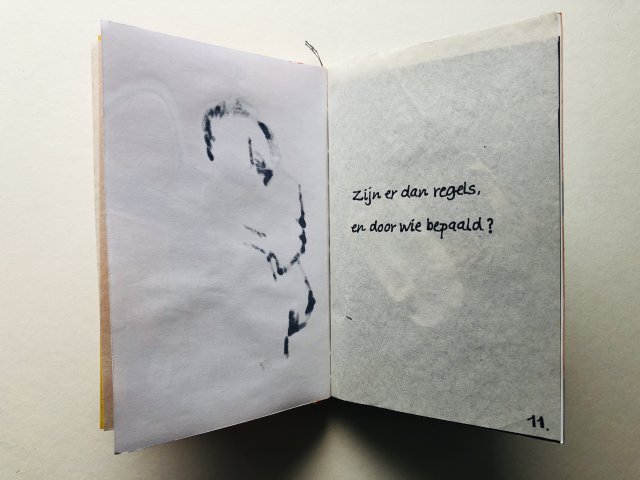 Zijn er dan regels,
en door wie bepaald?
11.